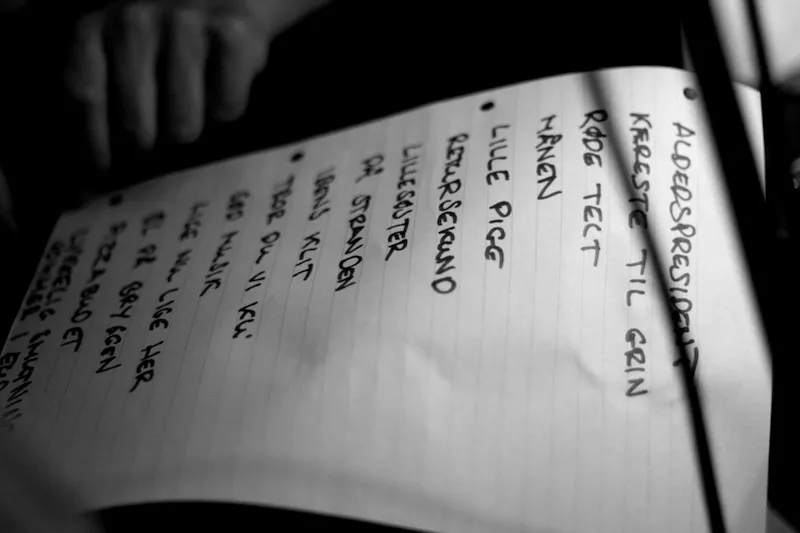 ALDERSPRESIDENT
KÆRESTE TIL GRIN
RØDE TELT
MÅNEN
LILLE PIGG
RETURSEKUND
LILLESØSTER
PÅ STRANDEN
IBENS KLIT
TROR DU VI KU'
GOD MUSIK
LIGE NU LIGE HER
ØL PÅ BRYGGEN
PIZZABUDET
LYKKELIG
SOMMER I